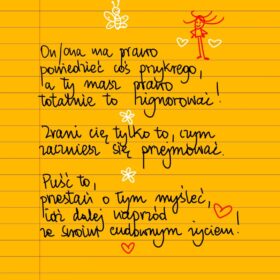 On/ona ma prawo
powiedzieć coś przykrego,
a ty masz prawo
totalnie to zignorować!
Zrani cię tylko to, czym
zaczniesz się przejmować.
Puść to,
przestań o tym myśleć,
idź dalej naprzód
ze swoim cudownym życiem!